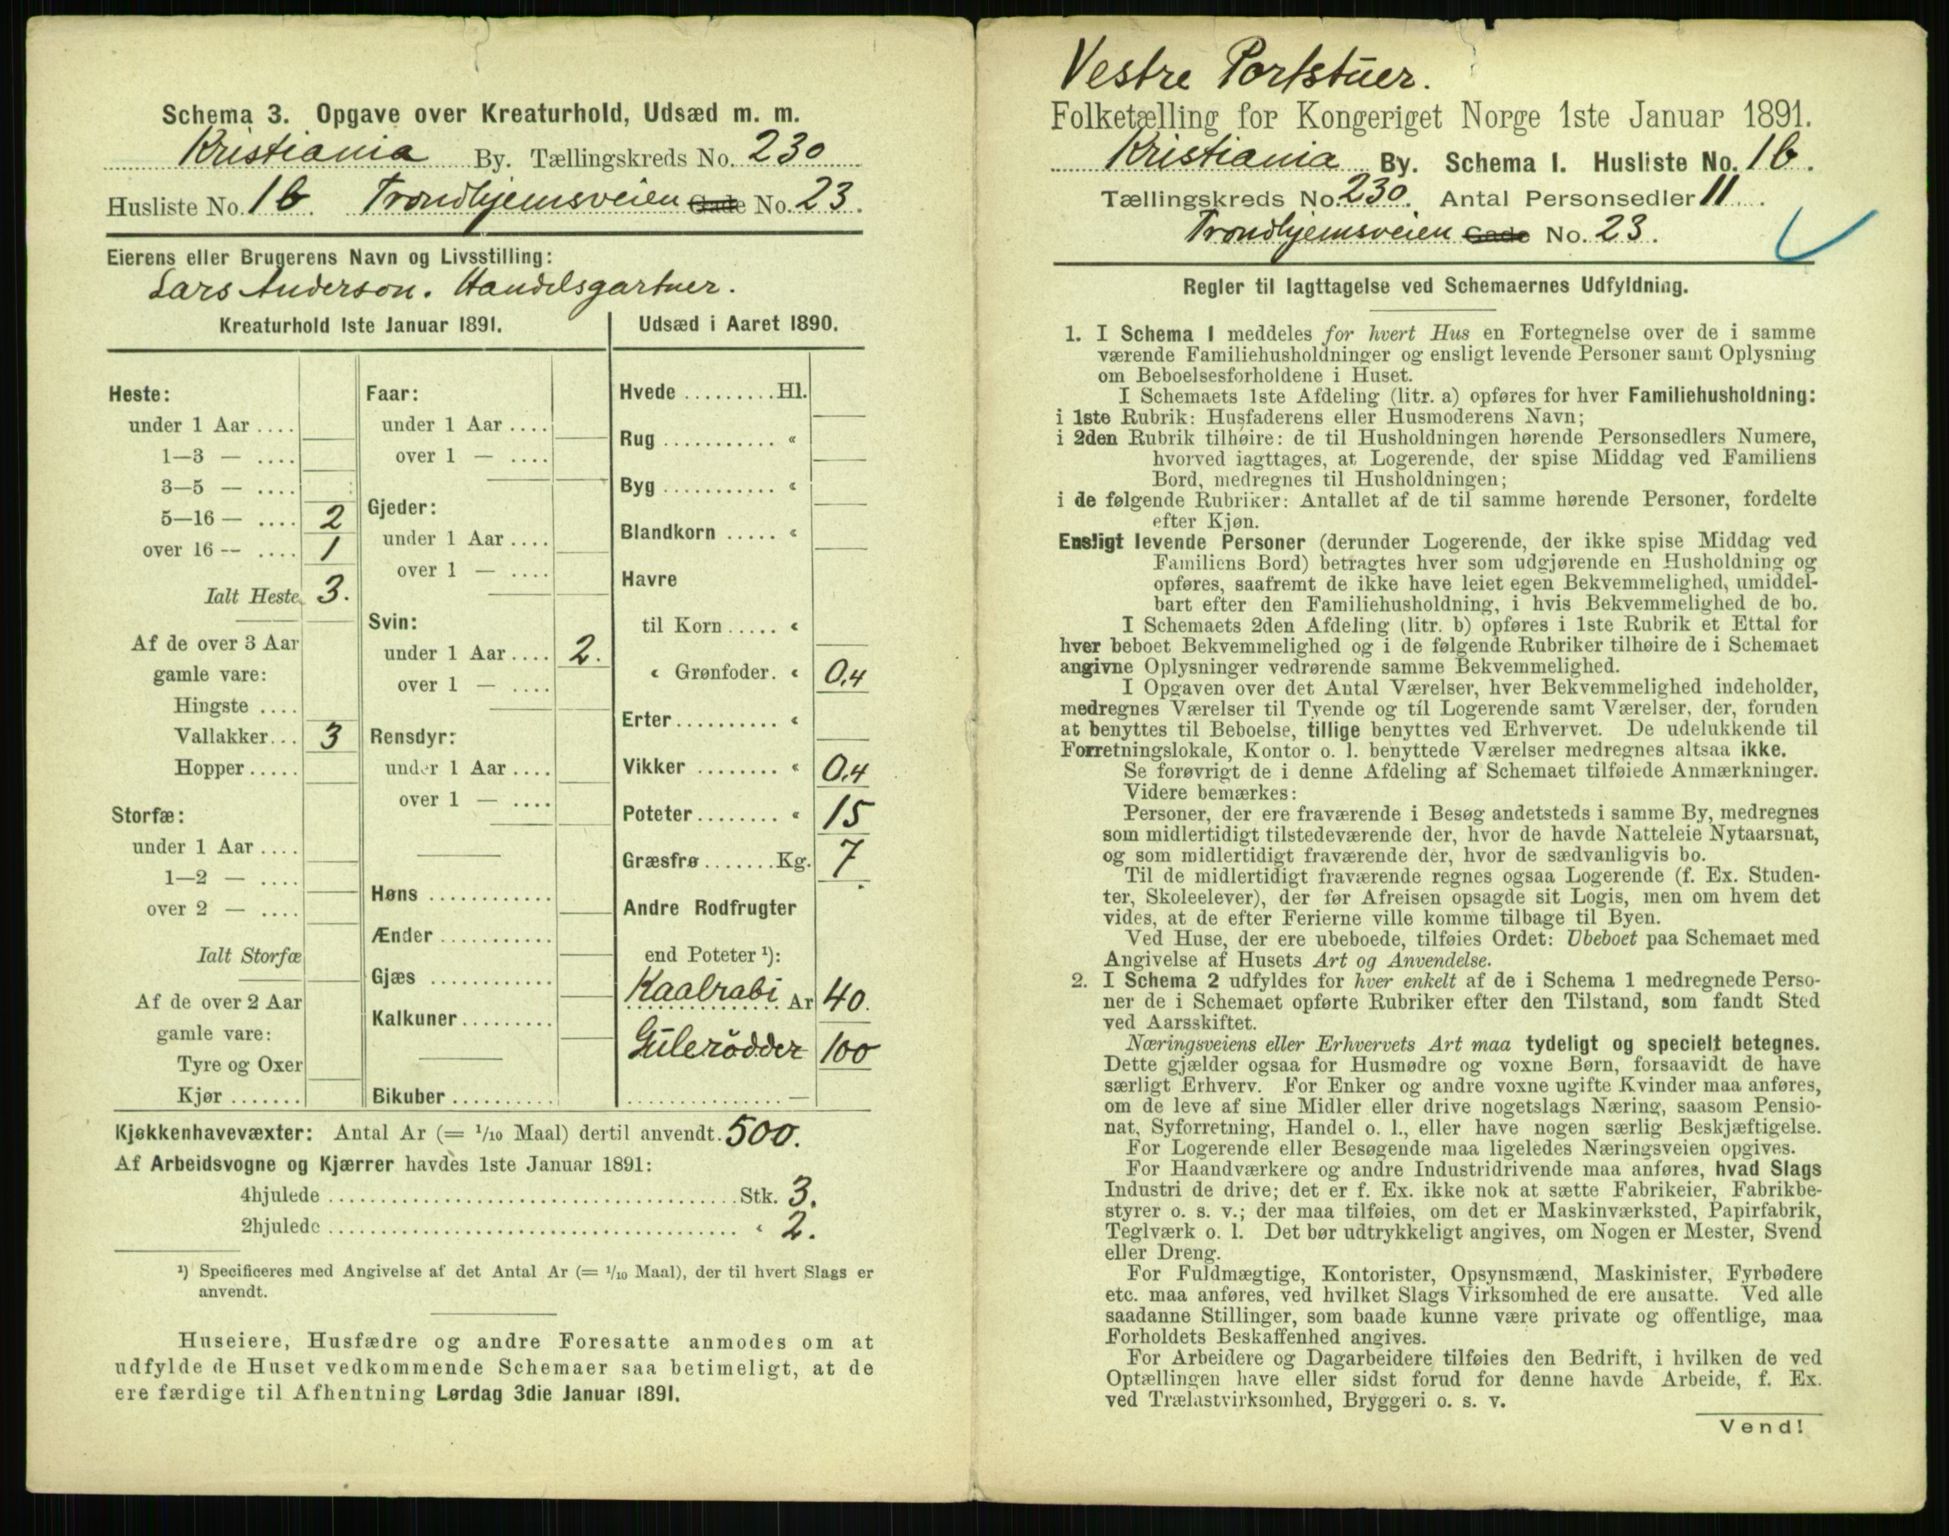 Schema 3. Opgave over Kreaturhold, Udsæd m. m.
Kristiania By. Tællingskreds No. 230
Husliste No. 1b. Trondhjemsveien Gade No. 23.
Eierens eller Brugerens Navn og Livsstilling:
Lars Anderson. Handelsgartner.
Kreaturhold 1ste Januar 1891.
Heste:
under 1 Aar ....
1—3 — ....
3—5 — ....
5—16 — .... 2
over 16 — .... 1
Ialt Heste 3.
Af de over 3 Aar
gamle vare:
Hingste ....
Vallakker... 3
Hopper .....
Storfæ:
under 1 Aar ....
1—2 — ....
over 2 — ....
Ialt Storfæ
Af de over 2 Aar
gamle vare:
Tyre og Oxer
Kjør .......
Faar:
under 1 Aar ....
over 1 — ....
Gjeder:
under 1 Aar ....
over 1 — ....
Svin:
under 1 Aar .... 2.
over 1 — ....
Rensdyr:
under 1 Aar ....
over 1 — ....
Høns ............
Ænder ...........
Gjæs ............
Kalkuner .........
Bikuber ..........
Udsæd i Aaret 1890.
Hvede ......... Hl.
Rug ........... «
Byg ........... «
Blandkorn ..... «
Havre
til Korn ..... «
« Grønfoder. « 0,4
Erter.......... «
Vikker ........ « 0,4
Poteter........ « 15
Græsfrø ....... Kg. 7.
Andre Rodfrugter
end Poteter ¹):
Kaalrabi Ar 40.
Gulerødder 100
............... —
Kjøkkenhavevæxter: Antal Ar (= 1/10 Maal) dertil anvendt. 500.
Af Arbeidsvogne og Kjærrer havdes 1ste Januar 1891:
4hjulede ..................................... Stk. 3.
2hjulede ..................................... « 2.
¹) Specificeres med Angivelse af det Antal Ar (= 1/10 Maal), der til hvert Slags er
anvendt.
Huseiere, Husfædre og andre Foresatte anmodes om at
udfylde de Huset vedkommende Schemaer saa betimeligt, at de
ere færdige til Afhentning Lørdag 3die Januar 1891.
Vestre Portstuer.
Folketælling for Kongeriget Norge 1ste Januar 1891.
Kristiania By. Schema I. Husliste No. 1b.
Tællingskreds No. 230. Antal Personsedler 11.
Trondhjemsveien Gade No. 23.
Regler til Iagttagelse ved Schemaernes Udfyldning.
1. I Schema 1 meddeles for hvert Hus en Fortegnelse over de i samme
værende Familiehusholdninger og ensligt levende Personer samt Oplysning
om Beboelsesforholdene i Huset.
I Schemaets 1ste Afdeling (litr. a) opføres for hver Familiehusholdning:
i 1ste Rubrik: Husfaderens eller Husmoderens Navn;
i 2den Rubrik tilhøire: de til Husholdningen hørende Personsedlers Numere,
hvorved iagttages, at Logerende, der spise Middag ved Familiens
Bord, medregnes til Husholdningen;
i de følgende Rubriker: Antallet af de til samme hørende Personer, fordelte
efter Kjøn.
Ensligt levende Personer (derunder Logerende, der ikke spise Middag ved
Familiens Bord) betragtes hver som udgjørende en Husholdning og
opføres, saafremt de ikke have leiet egen Bekvemmelighed, umiddel-
bart efter den Familiehusholdning, i hvis Bekvemmelighed de bo.
I Schemaets 2den Afdeling (litr. b) opføres i 1ste Rubrik et Ettal for
hver beboet Bekvemmelighed og i de følgende Rubriker tilhøire de i Schemaet
angivne Oplysninger vedrørende samme Bekvemmelighed.
I Opgaven over det Antal Værelser, hver Bekvemmelighed indeholder,
medregnes Værelser til Tyende og til Logerende samt Værelser, der, foruden
at benyttes til Beboelse, tillige benyttes ved Erhvervet. De udelukkende til
Forretningslokale, Kontor o. l. benyttede Værelser medregnes altsaa ikke.
Se forøvrigt de i denne Afdeling af Schemaet tilføiede Anmærkninger.
Videre bemærkes:
Personer, der ere fraværende i Besøg andetsteds i samme By, medregnes
som midlertidigt tilstedeværende der, hvor de havde Natteleie Nytaarsnat,
og som midlertidigt fraværende der, hvor de sædvanligvis bo.
Til de midlertidigt fraværende regnes ogsaa Logerende (f. Ex. Studen-
ter, Skoleelever), der før Afreisen opsagde sit Logis, men om hvem det
vides, at de efter Ferierne ville komme tilbage til Byen.
Ved Huse, der ere ubeboede, tilføies Ordet: Ubeboet paa Schemaet med
Angivelse af Husets Art og Anvendelse.
2. I Schema 2 udfyldes for hver enkelt af de i Schema 1 medregnede Perso-
ner de i Schemaet opførte Rubriker efter den Tilstand, som fandt Sted
ved Aarsskiftet.
Næringsveiens eller Erhvervets Art maa tydeligt og specielt betegnes.
Dette gjælder ogsaa for Husmødre og voxne Børn, forsaavidt de have
særligt Erhverv. For Enker og andre voxne ugifte Kvinder maa anføres,
om de leve af sine Midler eller drive nogetslags Næring, saasom Pensio-
nat, Syforretning, Handel o. l., eller have nogen særlig Beskjæftigelse.
For Logerende eller Besøgende maa ligeledes Næringsveien opgives.
For Haandværkere og andre Industridrivende maa anføres, hvad Slags
Industri de drive; det er f. Ex. ikke nok at sætte Fabrikeier, Fabrikbe-
styrer o. s. v.; der maa tilføies, om det er Maskinværksted, Papirfabrik,
Teglværk o. l. Det bør udtrykkeligt angives, om Nogen er Mester, Svend
eller Dreng.
For Fuldmægtige, Kontorister, Opsynsmænd, Maskinister, Fyrbødere
etc. maa anføres, ved hvilket Slags Virksomhed de ere ansatte. Ved alle
saadanne Stillinger, som baade kunne være private og offentlige, maa
Forholdets Beskaffenhed angives.
For Arbeidere og Dagarbeidere tilføies den Bedrift, i hvilken de ved
Optællingen have eller sidst forud for denne havde Arbeide, f. Ex.
ved Trælastvirksomhed, Bryggeri o. s. v.
Vend!